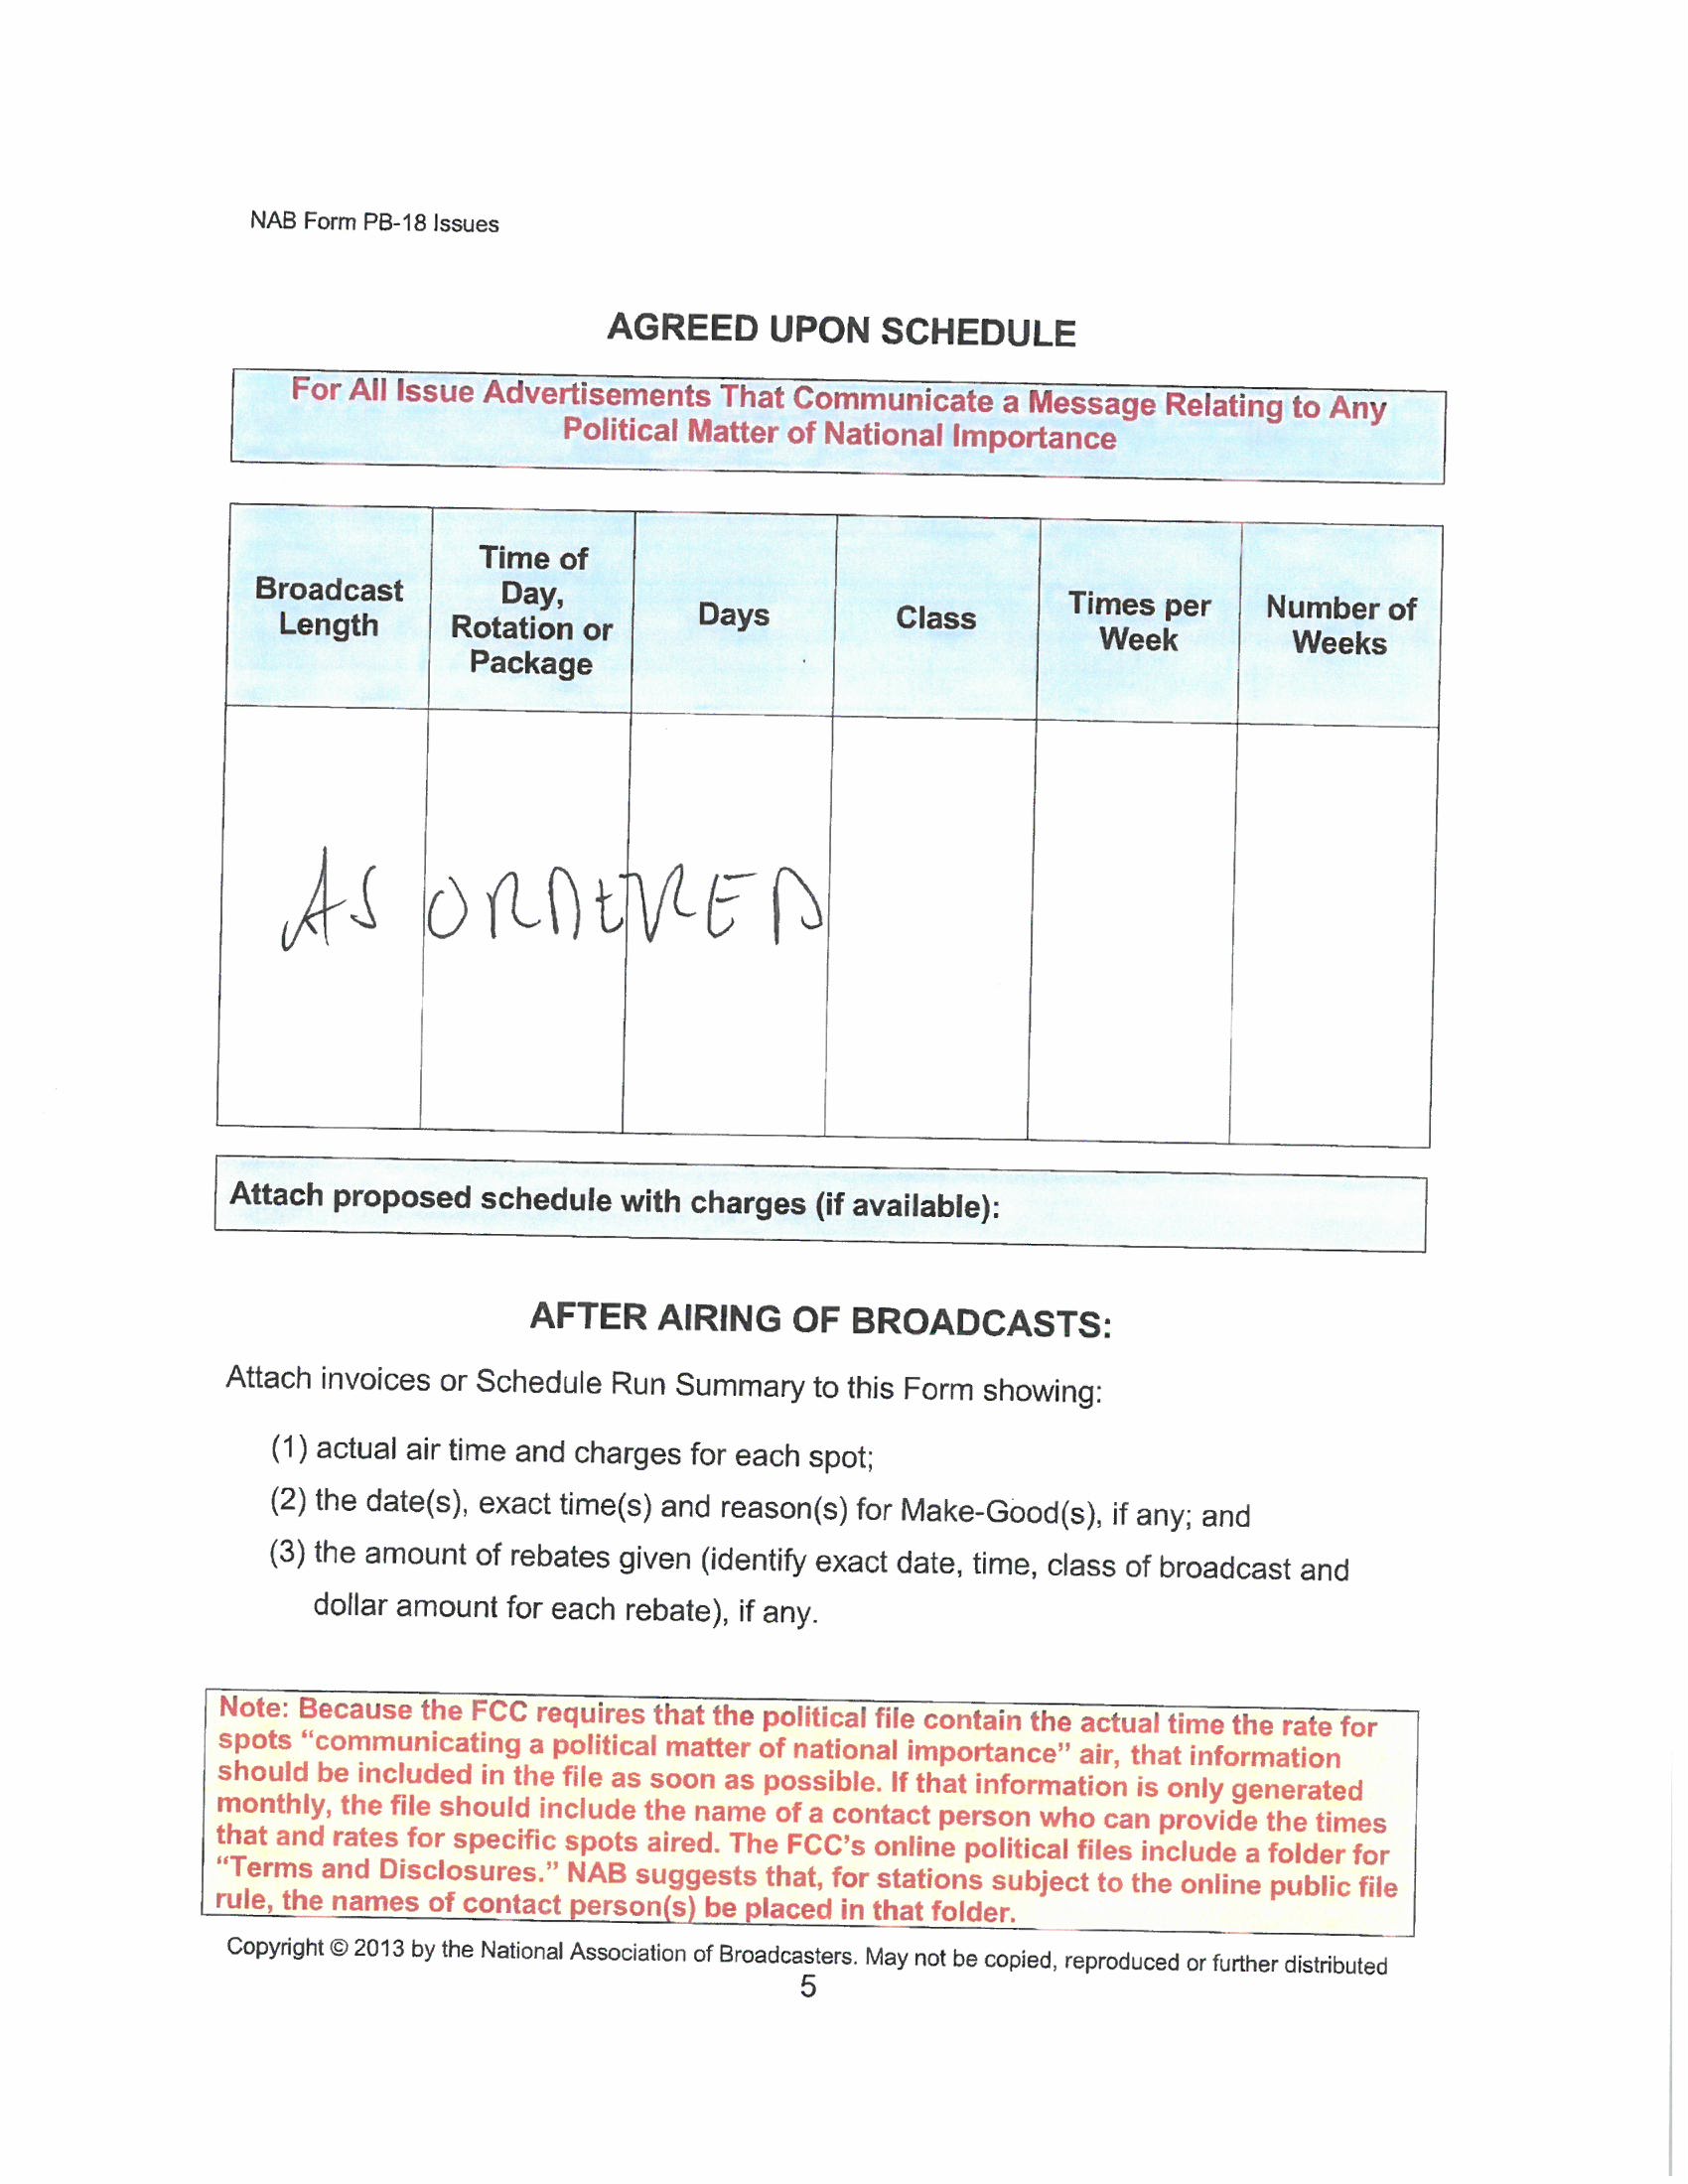 NAB Form PB-18 Issues
AGREED UPON SCHEDULE
For All Issue Advertisements That Communicate a Message Relating to Any
Political Matter of National Importance
Broadcast
Length
Time of
Day,
Rotation or
Package
Days
Class
Times per
Week
Number of
Weeks
AS ORDERED
Attach proposed schedule with charges (if available):
AFTER AIRING OF BROADCASTS:
Attach invoices or Schedule Run Summary to this Form showing:
(1) actual air time and charges for each spot;
(2) the date(s), exact time(s) and reason(s) for Make-Good(s), if any; and
(3) the amount of rebates given (identify exact date, time, class of broadcast and
dollar amount for each rebate), if any.
Note: Because the FCC requires that the political file contain the actual time the rate for
spots “communicating a political matter of national importance” air, that information
should be included in the file as soon as possible. If that information is only generated
monthly, the file should include the name of a contact person who can provide the times
that and rates for specific spots aired. The FCC’s online political files include a folder for
“Terms and Disclosures.” NAB suggests that, for stations subject to the online public file
rule, the names of contact person(s) be placed in that folder.
Copyright © 2013 by the National Association of Broadcasters. May not be copied, reproduced or further distributed
5